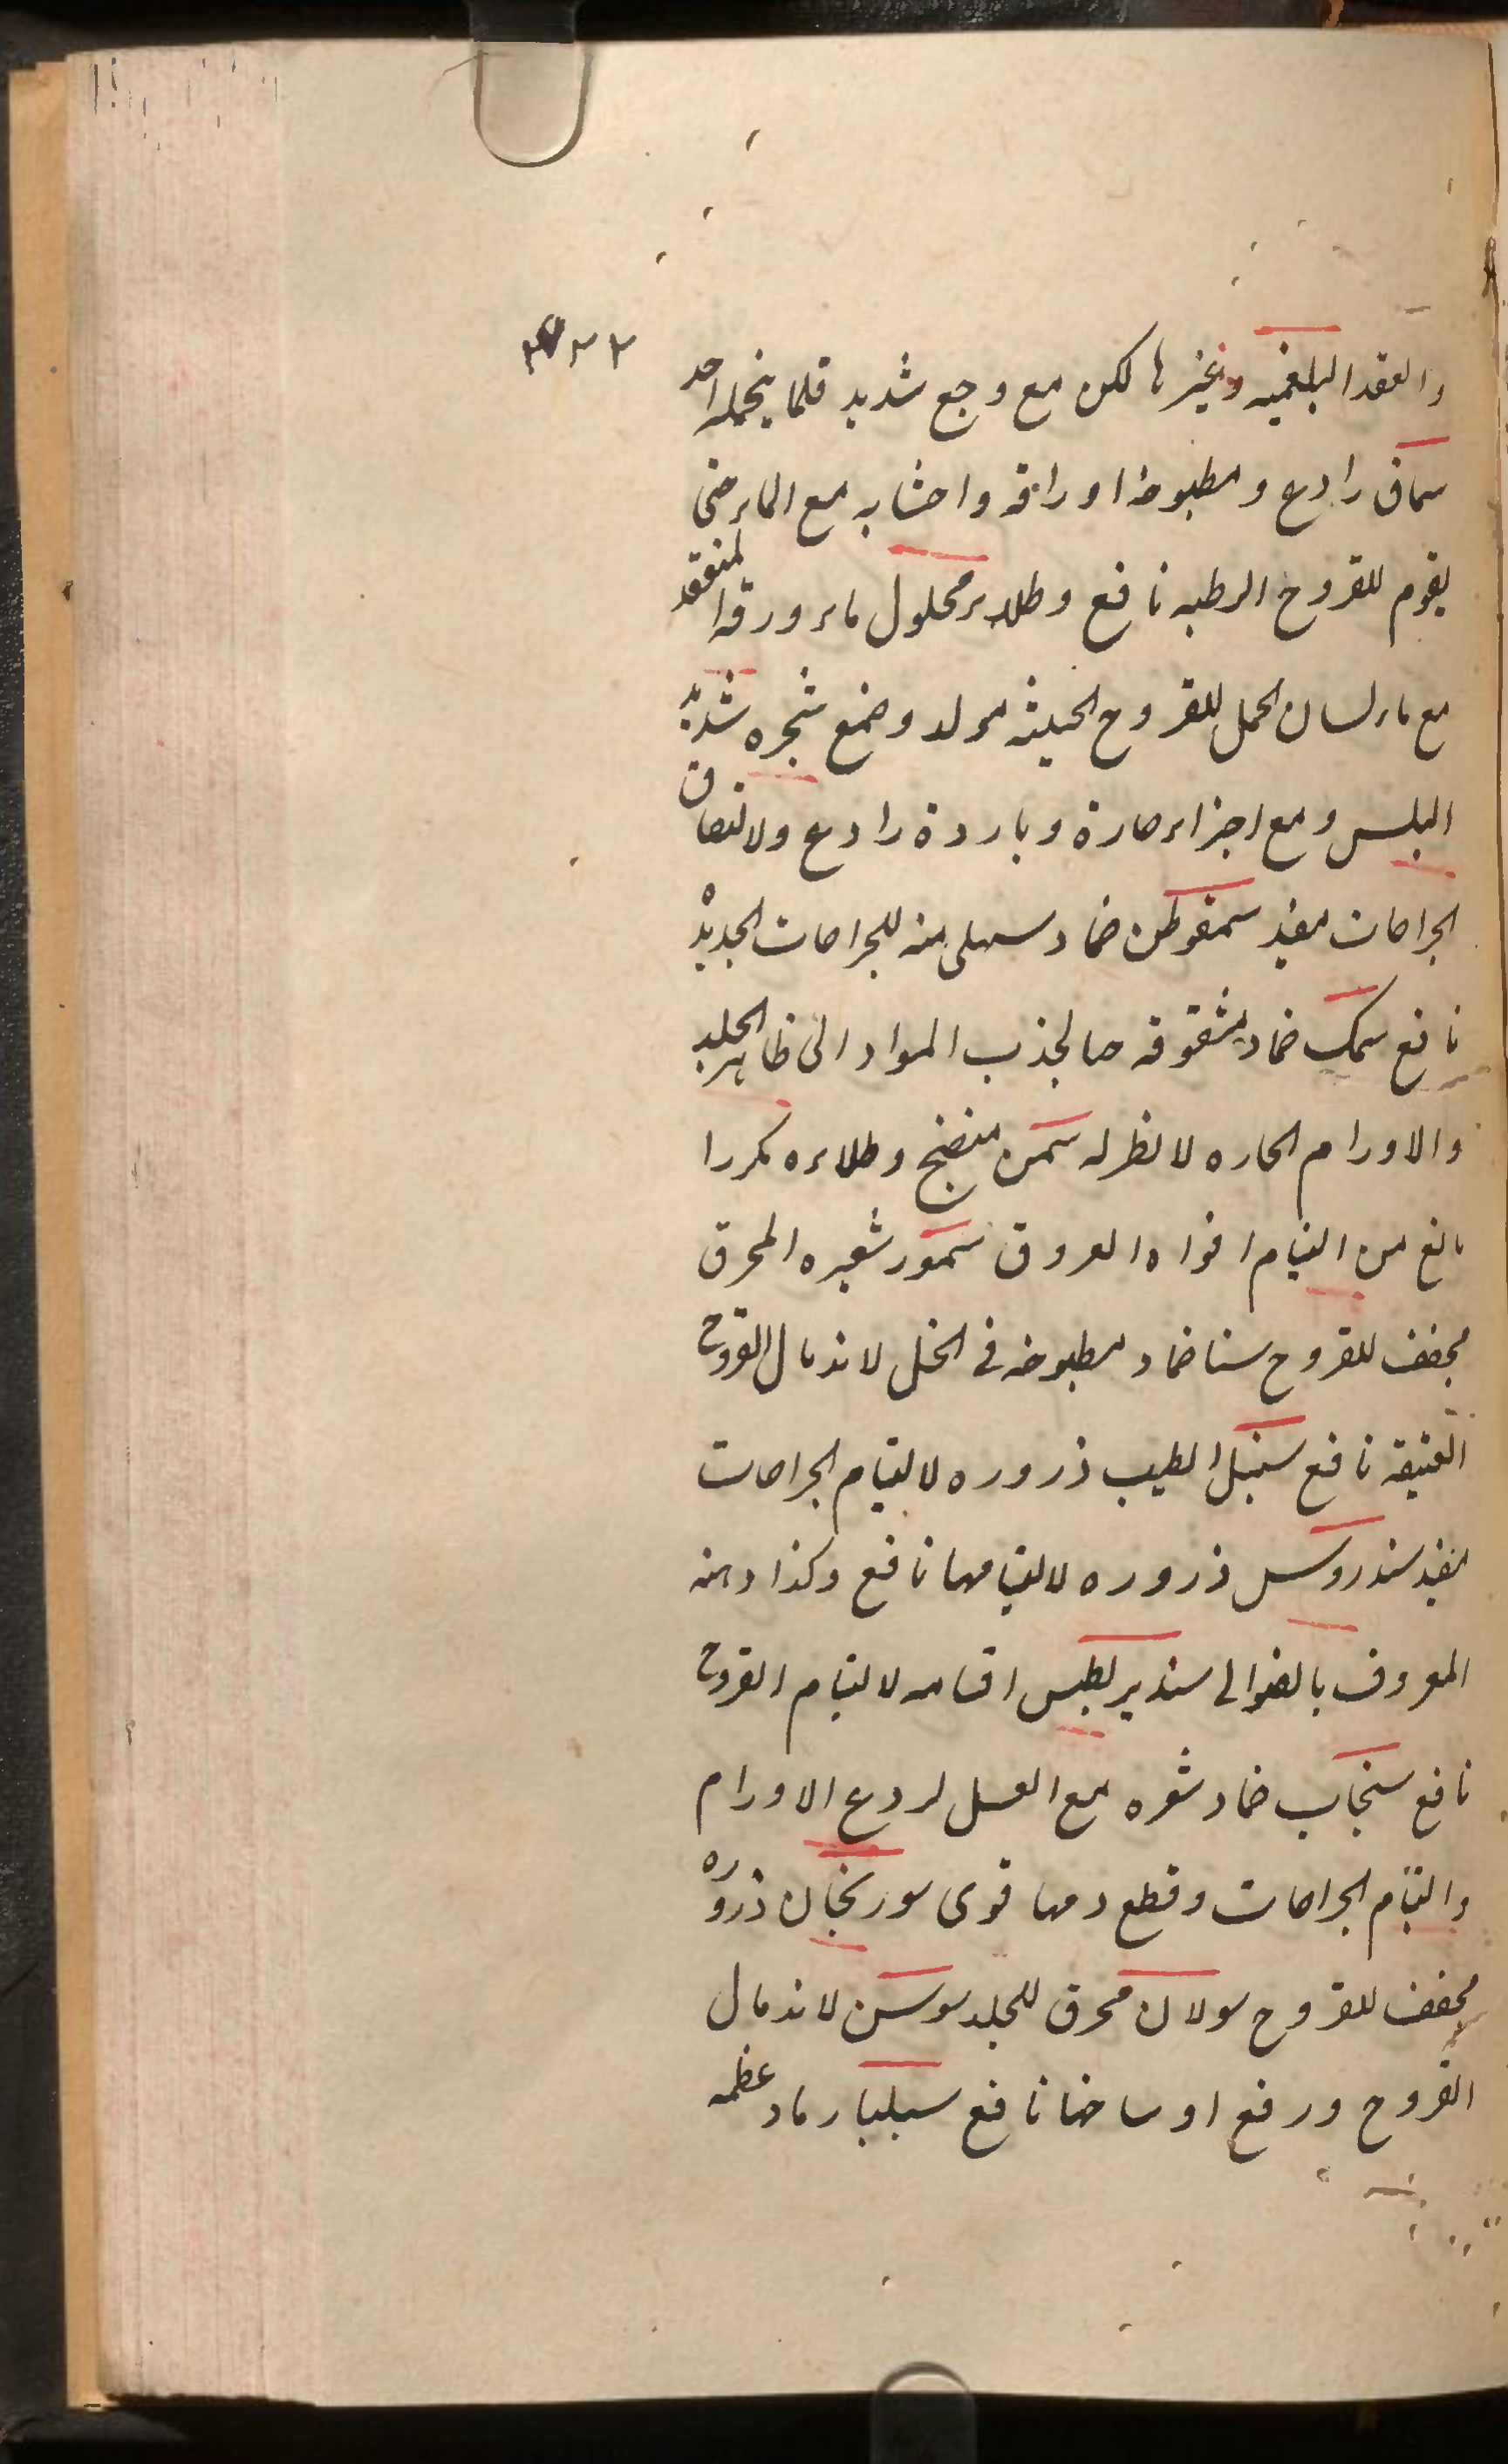 والعقد البلغميه وغيرها لكن مع وجع شديد قلما يتحمله احد
سماق رادع ومطبوخ اوراقه واخشابه مع الماء حتى
يقوم للقروح الرطبه نافع وطلاء محلول ماء ورقه المنعقد
مع ماء لسان الحمل للقروح الخبيثه مولد وضع شجره شديد
اليبس ومع اجزاء حارة وباردة رادع ولالتصاق
الجراحات مفيد سمفوطن ضماد سهلى منه للجراحات الجديد
نافع سمك ضماد مشقوقه حالجذب المواد الى ظاهر الجلد
والاورام الحاره لا نظر له سمن منضج وطلاءه مكررا
مانع من التيام افواه العروق سمور شعره المحرق
مجفف للقروح سنا ضماد مطبوخه فى الخل لاندمال القروح
العتيقه نافع سنبل الطيب ذروره لالتيام الجراحات
مفيد سندروس ذروره لالتيامها نافع وكذا دهنه
المعروف بالصوالى سنديريطس اقسامه لالتيام القروح
نافع سنجاب ضماد شعره مع العسل لردع الاورام
والتيام الجراحات وقطع دمها قوى سورنجان ذروره
مجفف للقروح سولان محرق للجلد سوسن لاندمال
القروح ورفع اوساخها نافع سيليا رماد عظمه